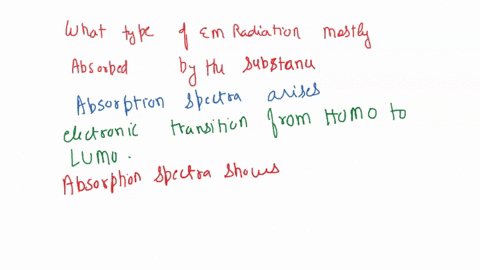 What type of EM Radiation mostly
Absorbed by the substance
Absorption spectra arises
electronic transition from HOMO to
LUMO.
Absorption spectra shows